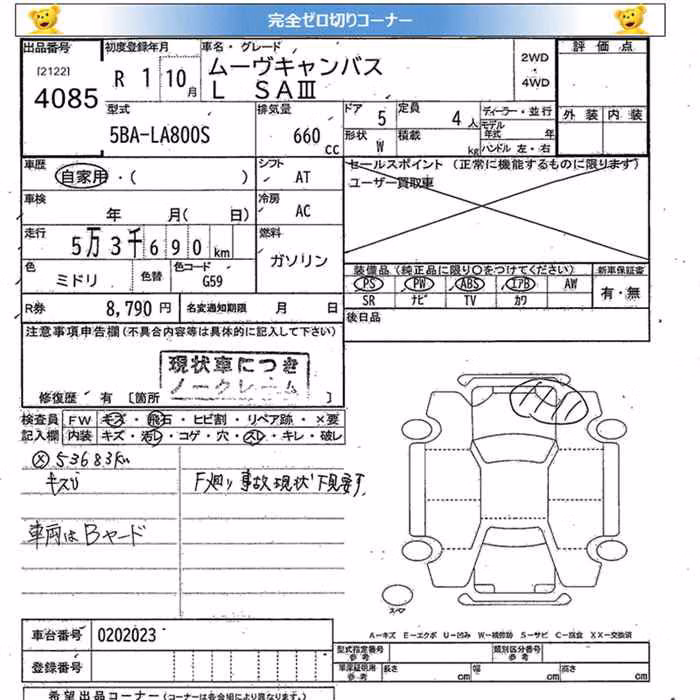 完全ゼロ切りコーナー
出品番号 初度登録年月 車名・グレード 評価点
[2122] 4085 R 1 10月 ムーヴキャンバス 2WD
L SAⅢ 4WD
型式 排気量 ドア 5 定員 4人 ディーラー・並行 外装 内装
5BA-LA800S 660cc 形状 W 積載 kg モデル年式 年
ハンドル 左・右
車歴 自家用・( ) シフト AT セールスポイント (正常に機能するものに限ります)
ユーザー買取車
車検 年 月( 日) 冷房 AC
走行 5万3千690km 燃料 ガソリン
色 ミドリ 色替 色コード G59 装備品(純正品に限り○をつけてください) 新車保証書
PS PW ABS エアB AW 有・無
SR ナビ TV カワ
R券 8,790円 名変通知期限 月 日 後日品
注意事項申告欄(不具合内容等は具体的に記入して下さい)
現状車につき
ノークレーム
修復歴 有 [箇所 ]
検査員 FW キズ・飛石・ヒビ割・リペア跡・×要
記入欄 内装 キズ・汚レ・コゲ・穴・スレ・キレ・破レ
53683Km
キズ F廻り事故現状 下見要す
車両はBヤード
スペア
A-キズ E-エクボ U-凹み W-補修跡 S-サビ C-腐食 XX-交換済
車台番号 0202023 型式指定番号 参考 類別区分番号 参考
登録番号 参考 長さ cm 幅 cm 高さ cm
希望出品コーナー(コーナーは各会場により異なります。)